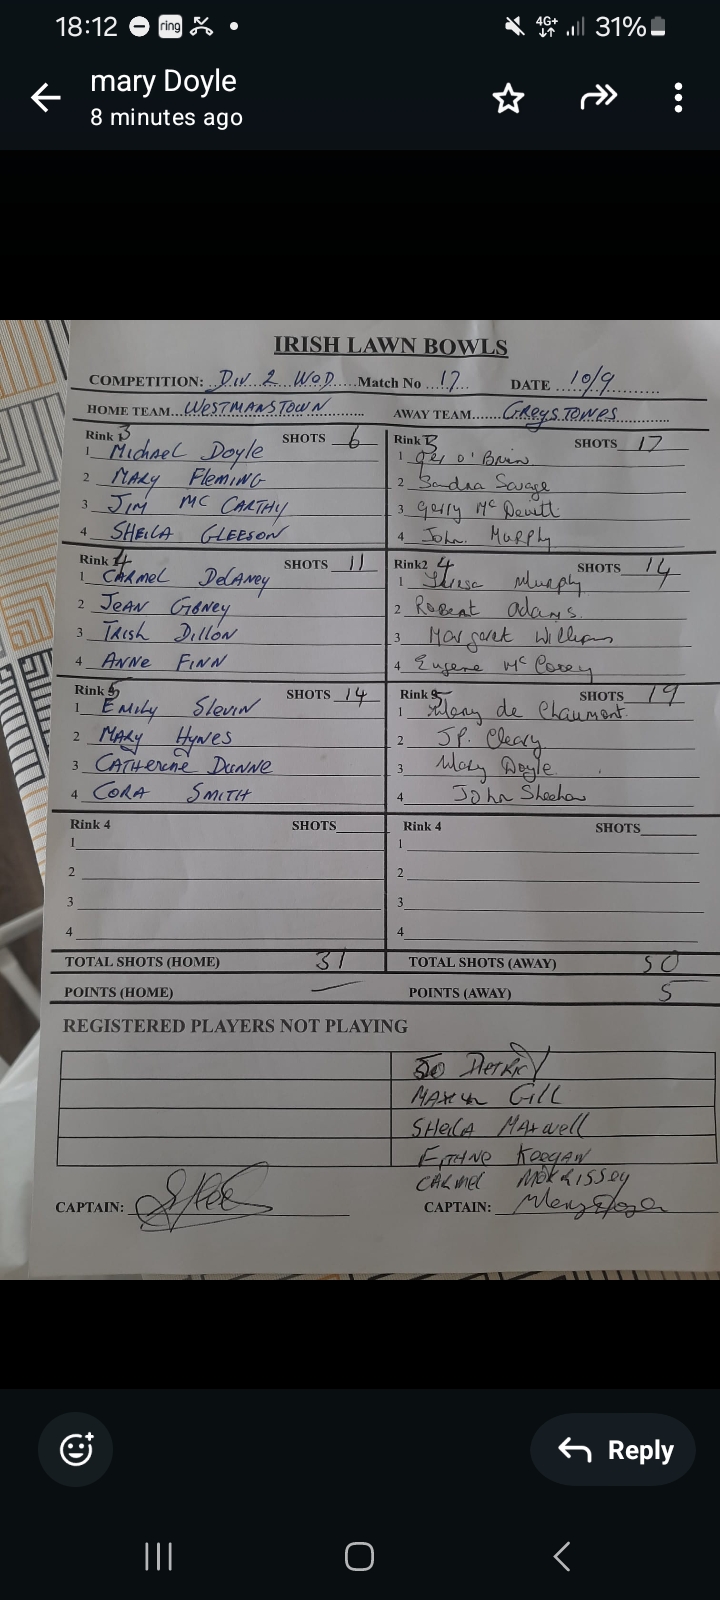 18:12 ring 4G+ 31%
mary Doyle
8 minutes ago
IRISH LAWN BOWLS
COMPETITION: DIV 2 WOD Match No 17 DATE 10/9
HOME TEAM WESTMANSTOWN AWAY TEAM GREYSTONES
Rink 3 SHOTS 6 Rink 3 SHOTS 17
1 Michael Doyle 1 O'Brien
2 MARY Fleming 2 Sandra Savage
3 JIM MC CARTHY 3 Gerry Mc Devitt
4 SHEILA GLEESON 4 John Murphy
Rink 4 SHOTS 11 Rink2 4 SHOTS 14
1 CARMEL DELANEY 1 Teresa Murphy
2 JEAN 2 Robert Adams
3 TRISH DILLON 3 Margaret Williams
4 ANNE FINN 4 Eugene Mc
Rink 5 SHOTS 14 Rink 5 SHOTS 19
1 EMILY Slevin 1 de Chaumont
2 MARY HYNES 2 JP. Cleary
3 CATHERINE DUNNE 3 Mary Doyle
4 CORA SMITH 4 John Sheehan
Rink 4 SHOTS Rink 4 SHOTS
1 1
2 2
3 3
4 4
TOTAL SHOTS (HOME) 31 TOTAL SHOTS (AWAY) 50
POINTS (HOME) — POINTS (AWAY) 5
REGISTERED PLAYERS NOT PLAYING
GILL
SHEILA MAXWELL
KEEGAN
CARMEL MORRISSEY
CAPTAIN: CAPTAIN: Mary Doyle
Reply